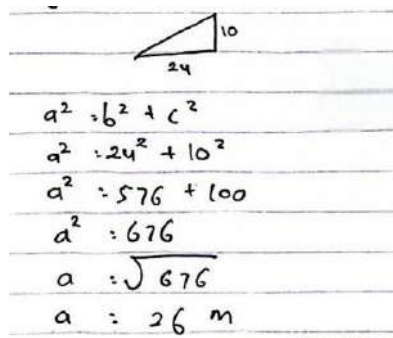 10
24
a² = b² + c²
a² = 24² + 10²
a² = 576 + 100
a² = 676
a = √676
a = 26 m